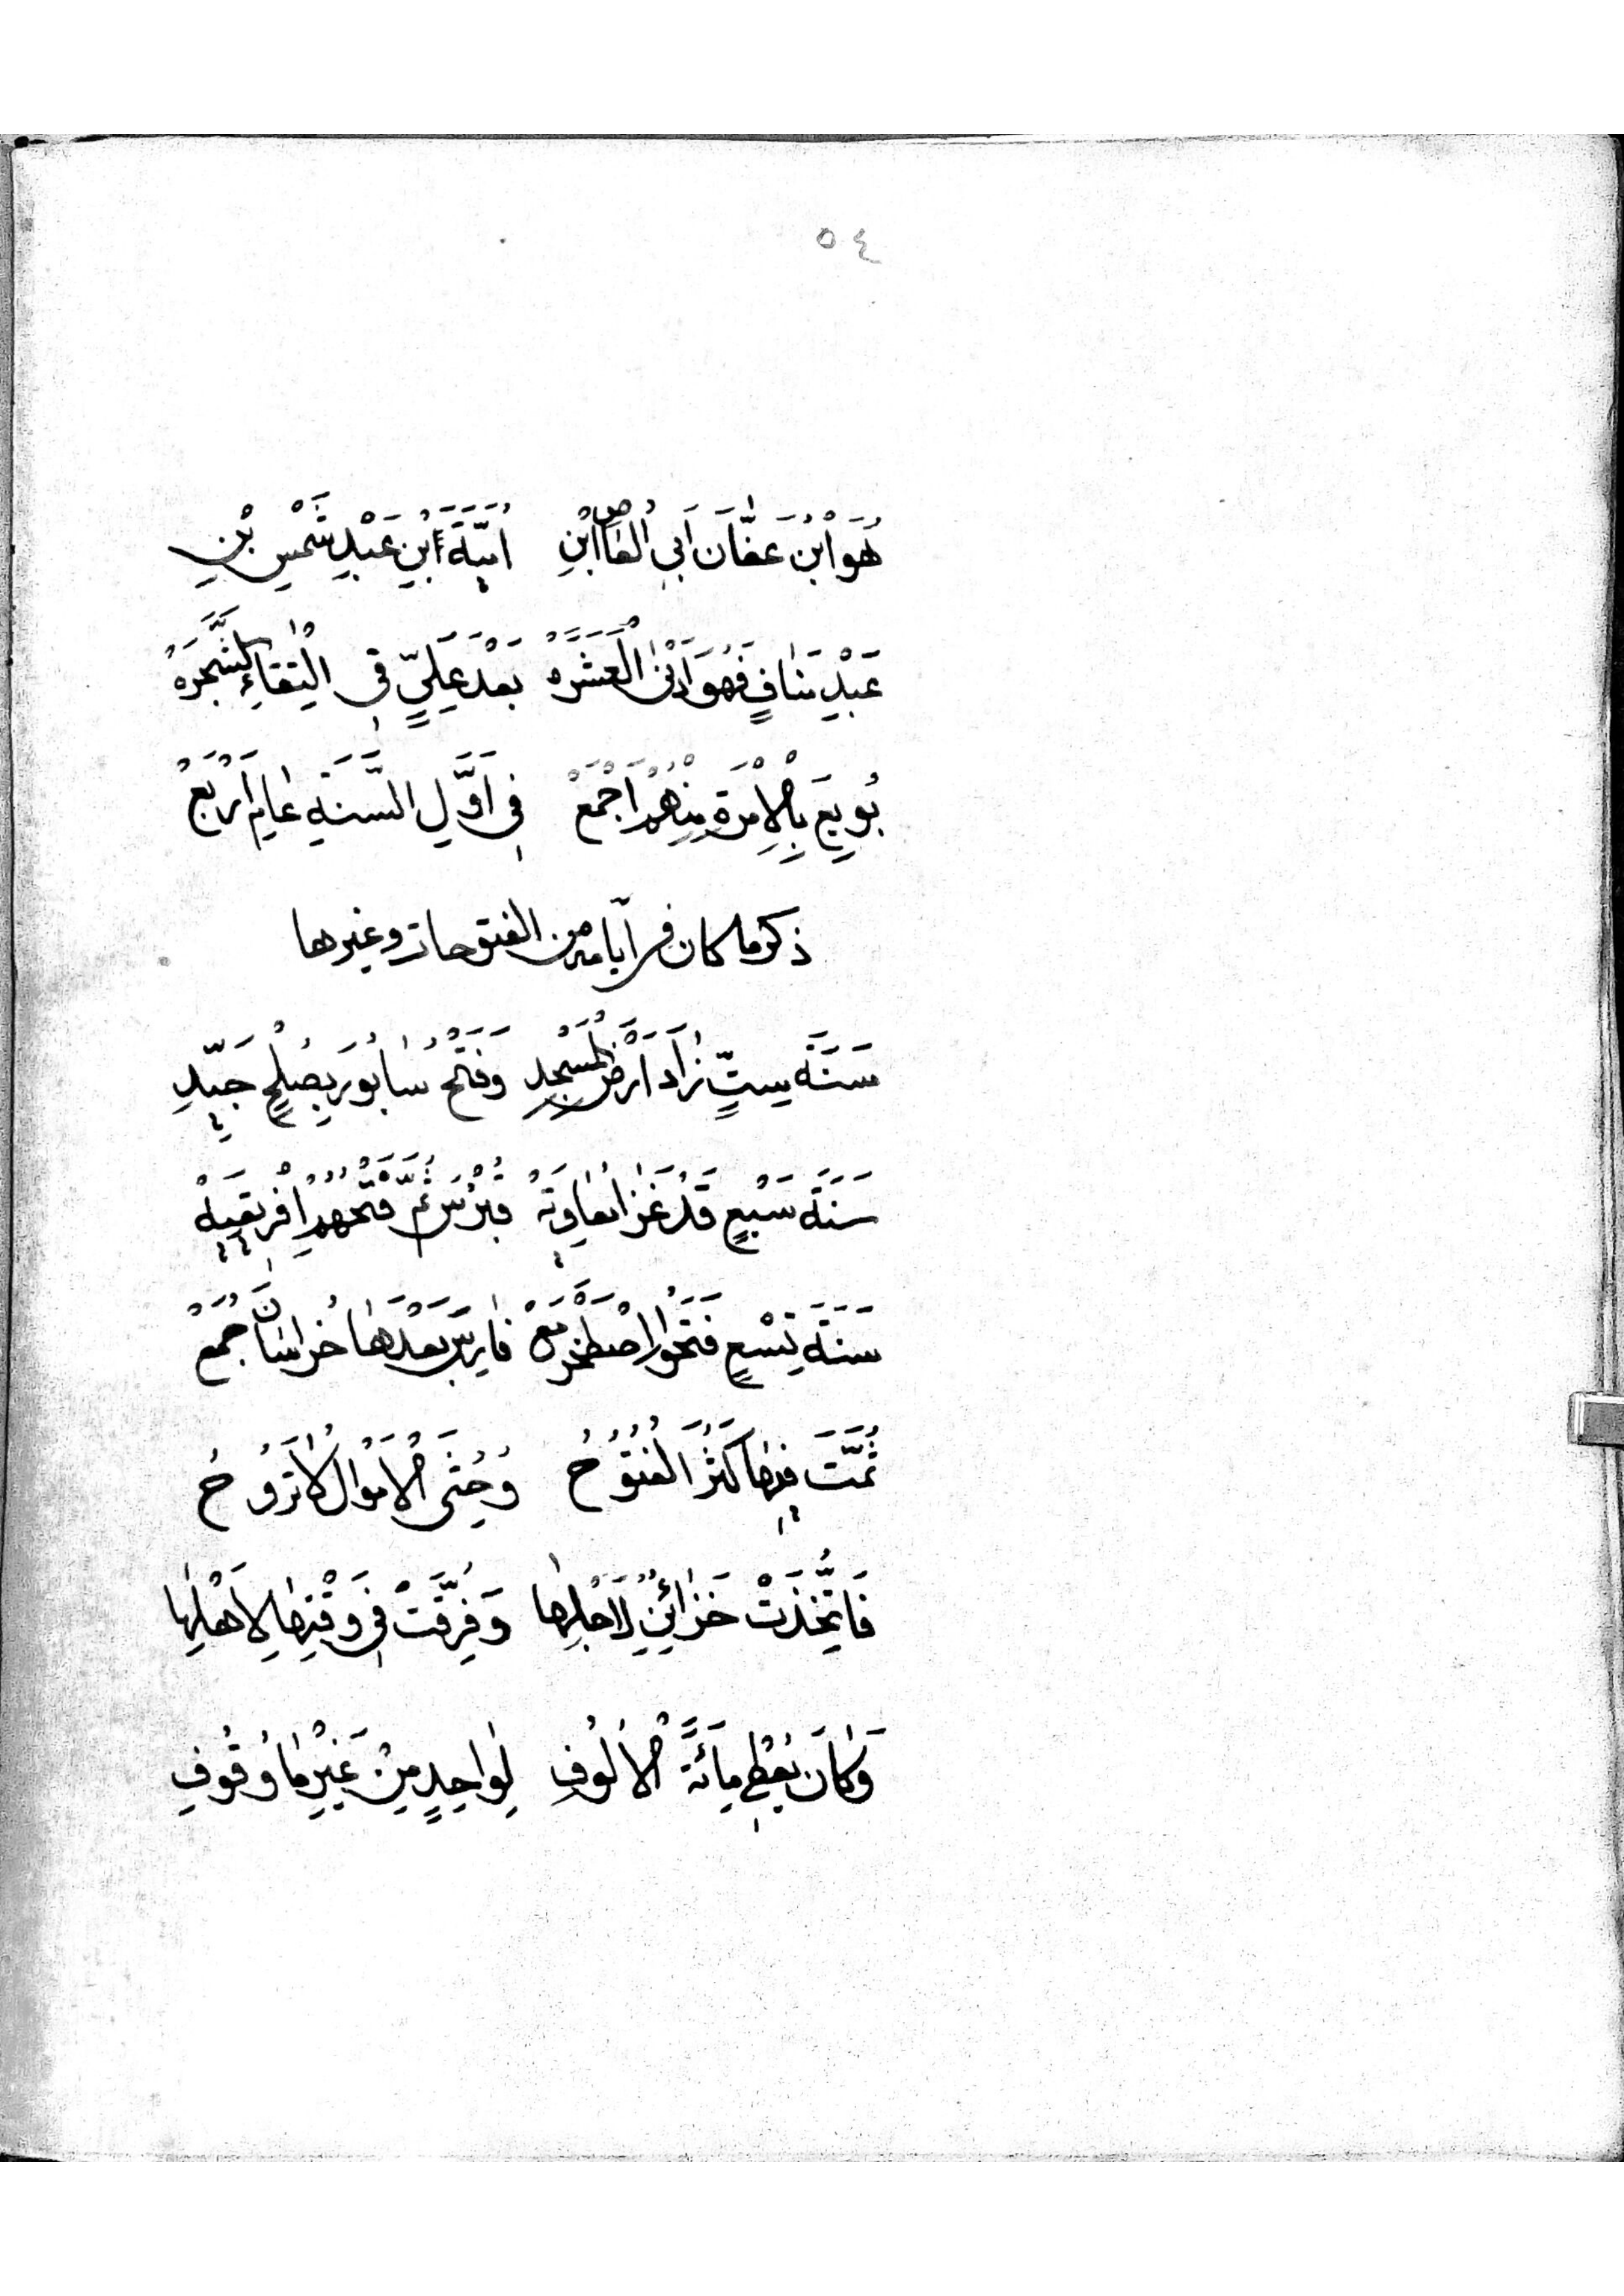 ٥٤
هُوَ ابْنُ عَفَّانَ اَبِى الْعَاصِ ابْنِ اُمَيَّةَ ابْنِ عَبْدِ شَمْسِ بْنِ
عَبْدِ مَنَافٍ فَهُوَ اَدْنَى الْعَشَرَهْ بَعْدَ عَلِيٍّ فِى الْتِقَاءِ الشَّجَرَهْ
بُويِعَ بِالْاِمْرَةِ مِنْهُمْ اَجْمَعْ فِى اَوَّلِ السَّنَةِ عَامِ اَرْبَعْ
ذكر ما كان فى ايامه من الفتوحات وغيرها
سَنَةَ سِتٍّ زَادَ اَرْضَ الْمَسْجِدِ وَفَتْحُ سَابُورَ بِصُلْحٍ جَيِّدِ
سَنَةَ سَبْعٍ قَدْ غَزَا مُعَاوِيَهْ قُبْرُسَ ثُمَّ فَتْحُهُمْ اِفْرِيقِيَهْ
سَنَةَ تِسْعٍ فَتَحُوا اِصْطَخْرَ مَعْ فَارِسَ بَعْدَهَا خُرَاسَانَ جُمَعْ
ثُمَّتَ فِيهَا كَثُرَ الْفُتُوحُ وَحُثِيَ الْاَمْوَالُ لَا تَرُوحُ
فَاتُّخِذَتْ خَزَائِنٌ لِاَجْلِهَا وَفُرِّقَتْ فِى وَقْتِهَا لِاَهْلِهَا
وَكَانَ يُعْطِى مِائَةَ الْاُلُوفِ لِوَاحِدٍ مِنْ غَيْرِ مَا وُقُوفِ